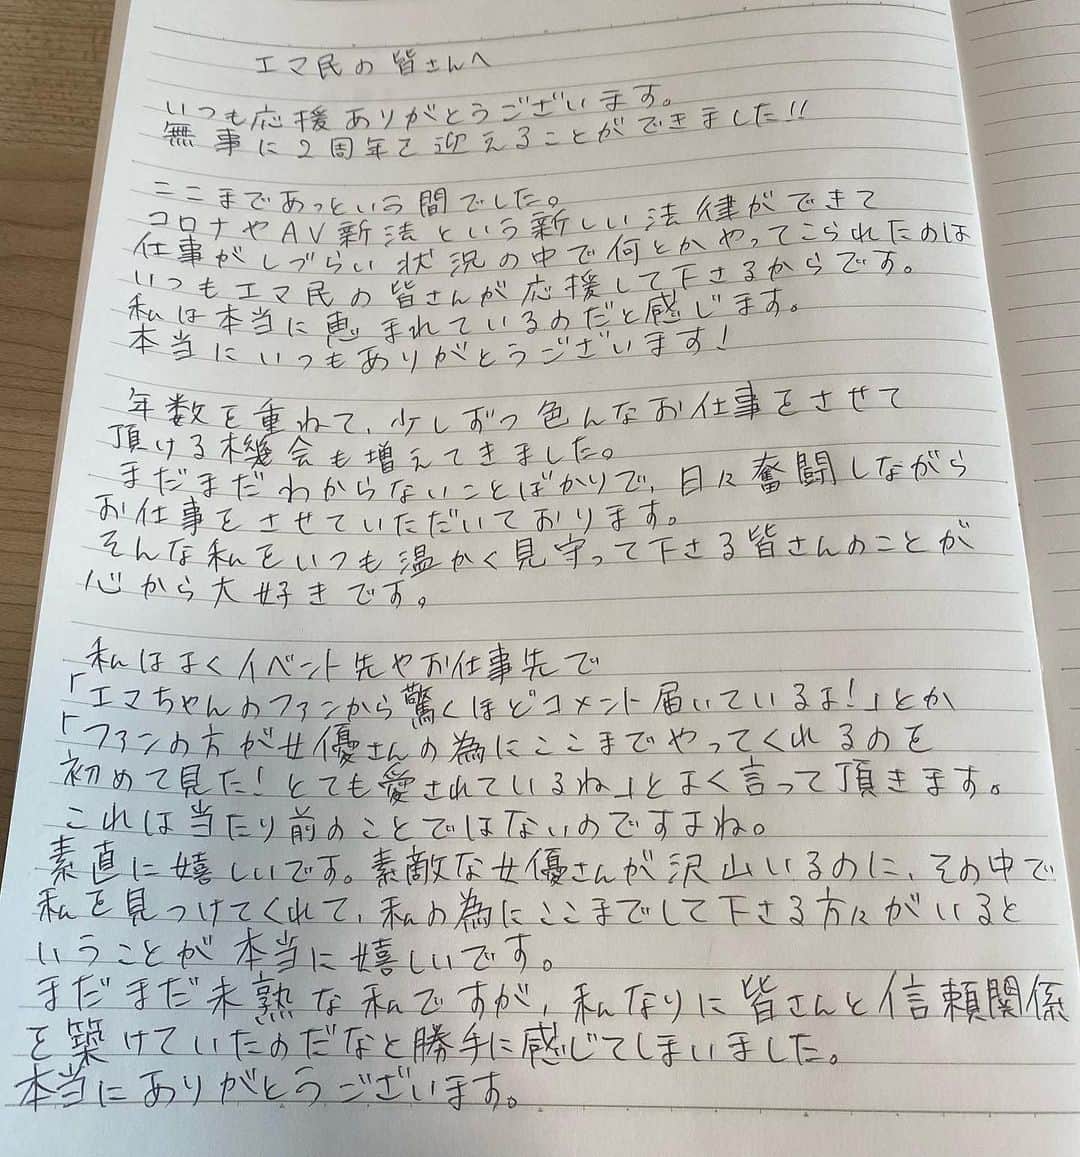 エマ民の皆さんへ
いつも応援ありがとうございます。
無事に2周年を迎えることができました!!
ここまであっという間でした。
コロナやAV新法という新しい法律ができて
仕事がしづらい状況の中で何とかやってこられたのは
いつもエマ民の皆さんが応援して下さるからです。
私は本当に恵まれているのだと感じます。
本当にいつもありがとうございます!
年数を重ねて、少しずつ色んなお仕事をさせて
頂ける機会も増えてきました。
まだまだわからないことばかりで、日々奮闘しながら
お仕事をさせていただいております。
そんな私をいつも温かく見守って下さる皆さんのことが
心から大好きです。
私はよくイベント先やお仕事先で
「エマちゃんのファンから驚くほどコメント届いているよ!」とか
「ファンの方が女優さんの為にここまでやってくれるのを
初めて見た!とても愛されているね」とよく言って頂きます。
これは当たり前のことではないのですよね。
素直に嬉しいです。素敵な女優さんが沢山いるのに、その中で
私を見つけてくれて、私の為にここまでして下さる方々がいると
いうことが本当に嬉しいです。
まだまだ未熟な私ですが、私なりに皆さんと信頼関係
を築けていたのだなと勝手に感じてしまいました。
本当にありがとうございます。